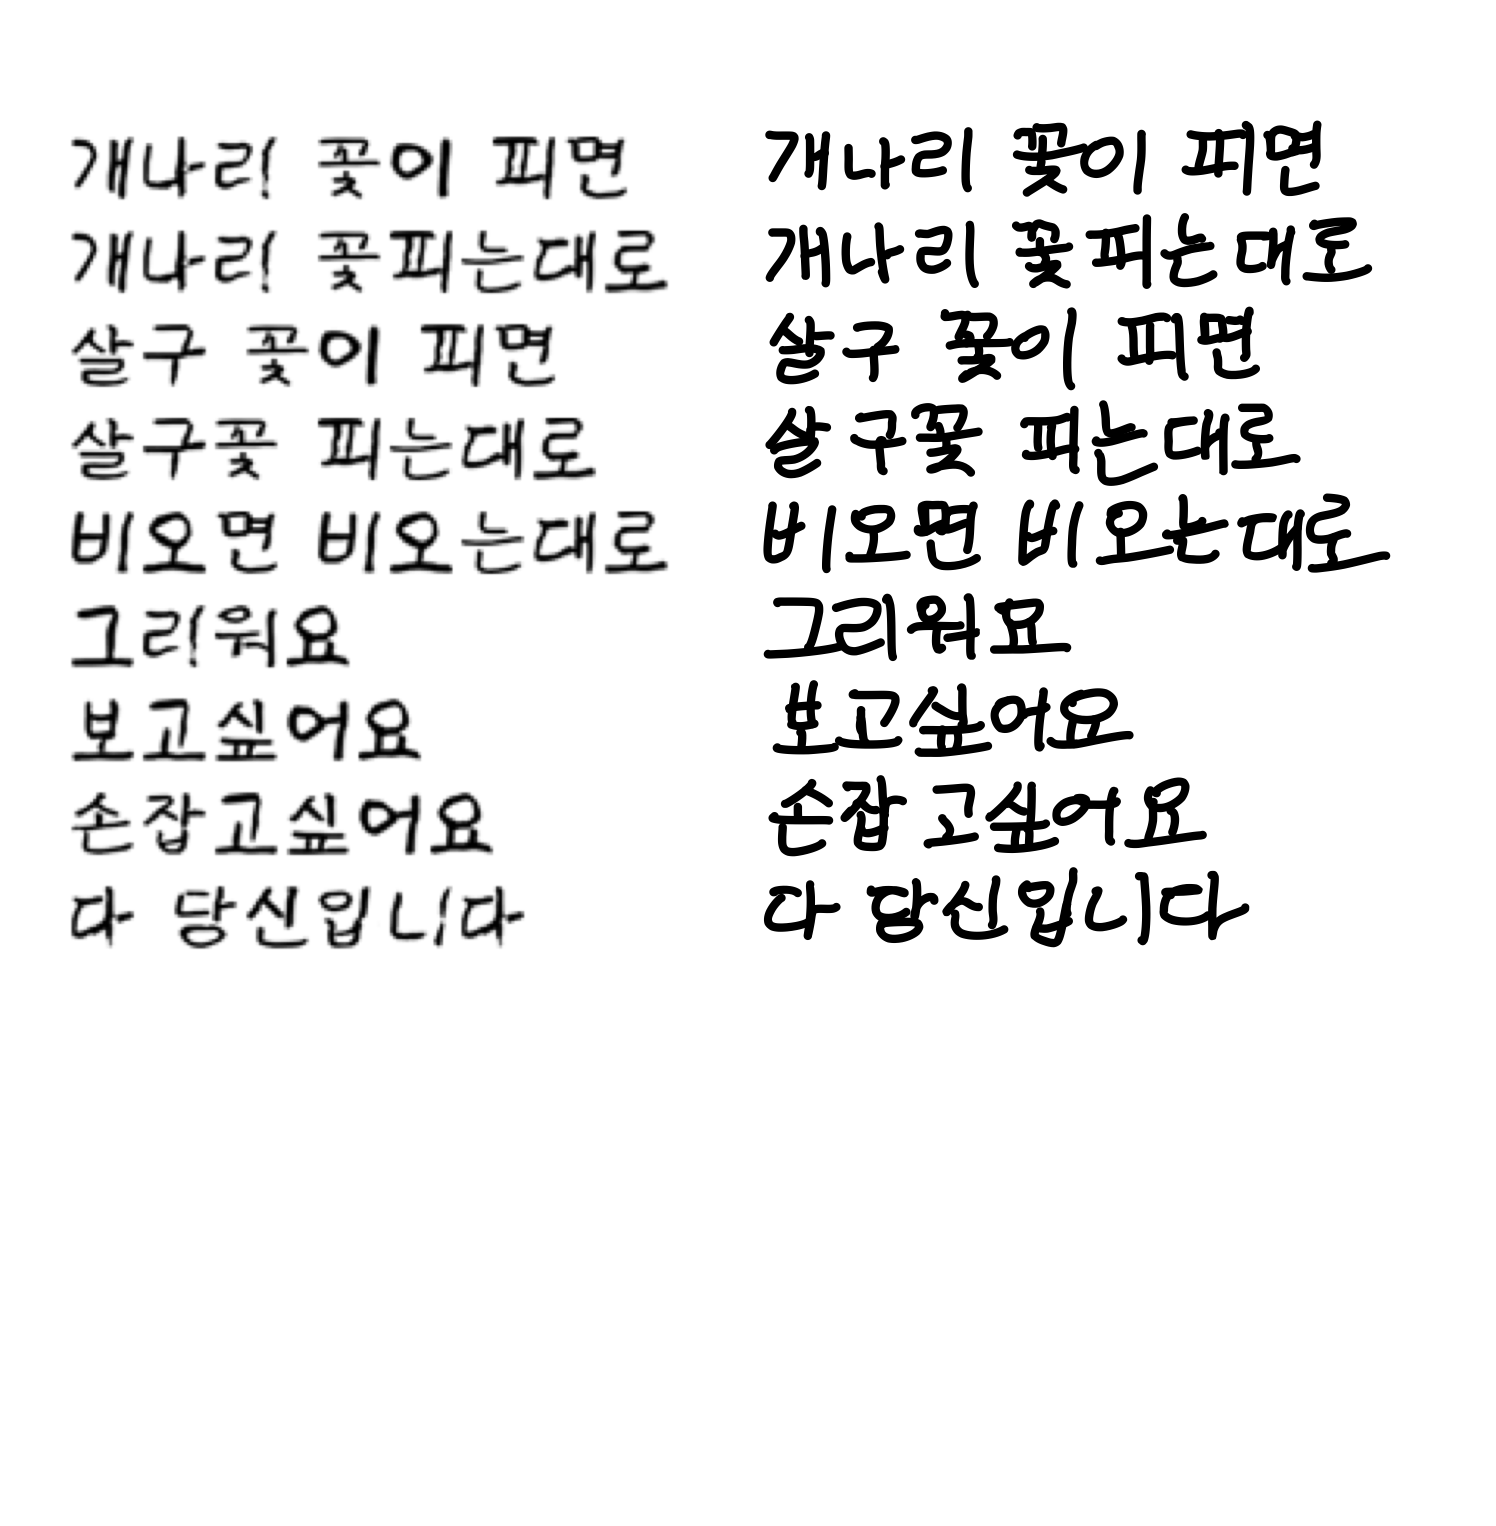 개나리 꽃이 피면
개나리 꽃피는대로
살구 꽃이 피면
살구꽃 피는대로
비오면 비오는대로
그리워요
보고싶어요
손잡고싶어요
다 당신입니다
개나리 꽃이 피면
개나리 꽃피는대로
살구 꽃이 피면
살구꽃 피는대로
비오면 비오는대로
그리워요
보고싶어요
손잡고싶어요
다 당신입니다